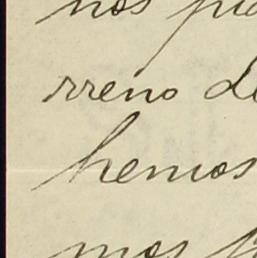 nos pu
rreno de
hemos
mos p